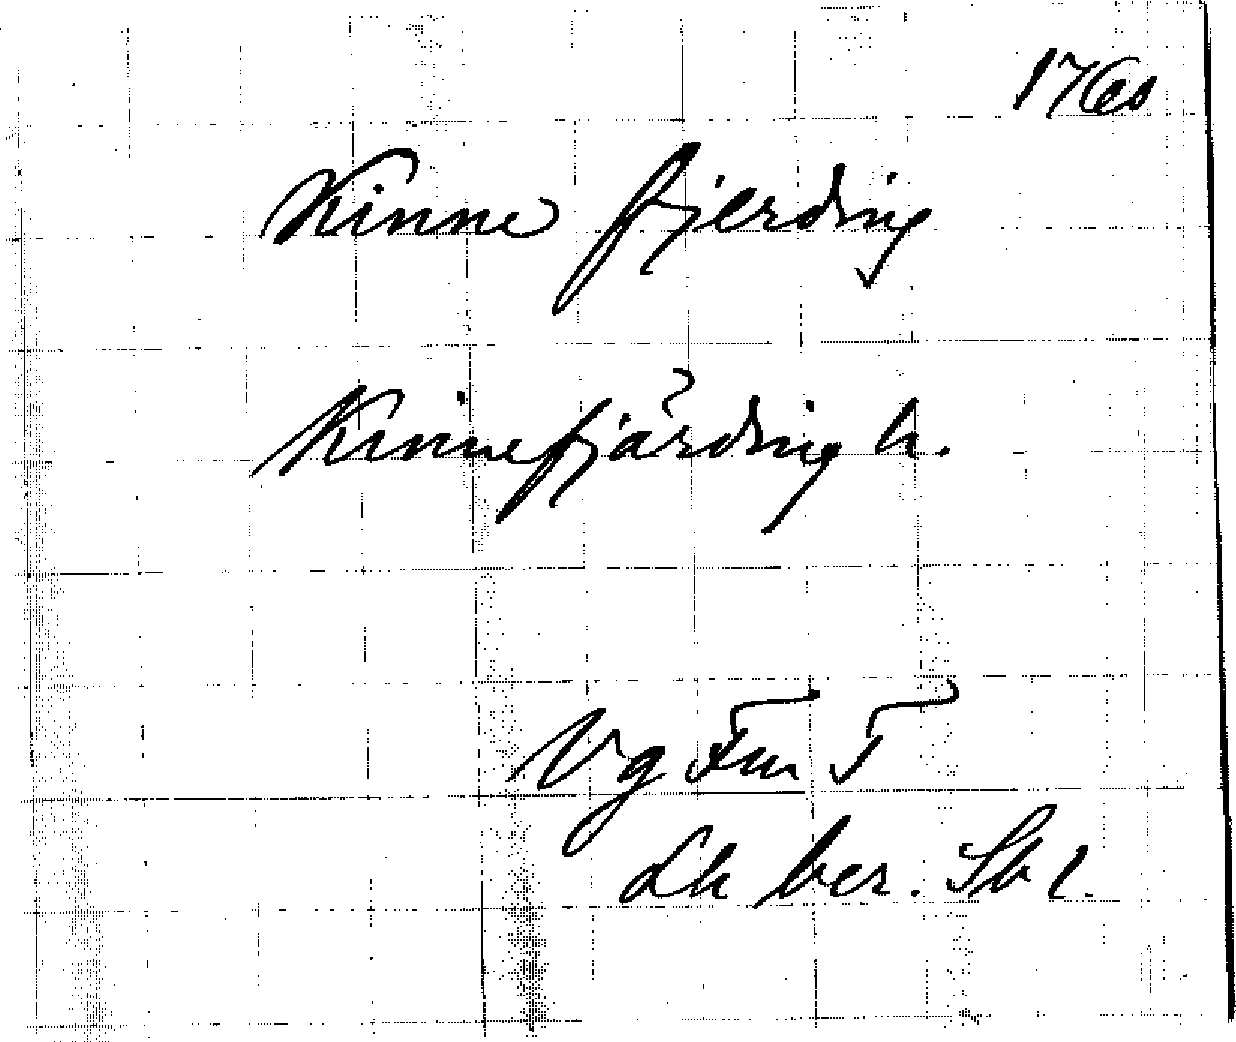 1760
Kinne fjerding
Kinnefjärding h.
Vg
Lk ber.